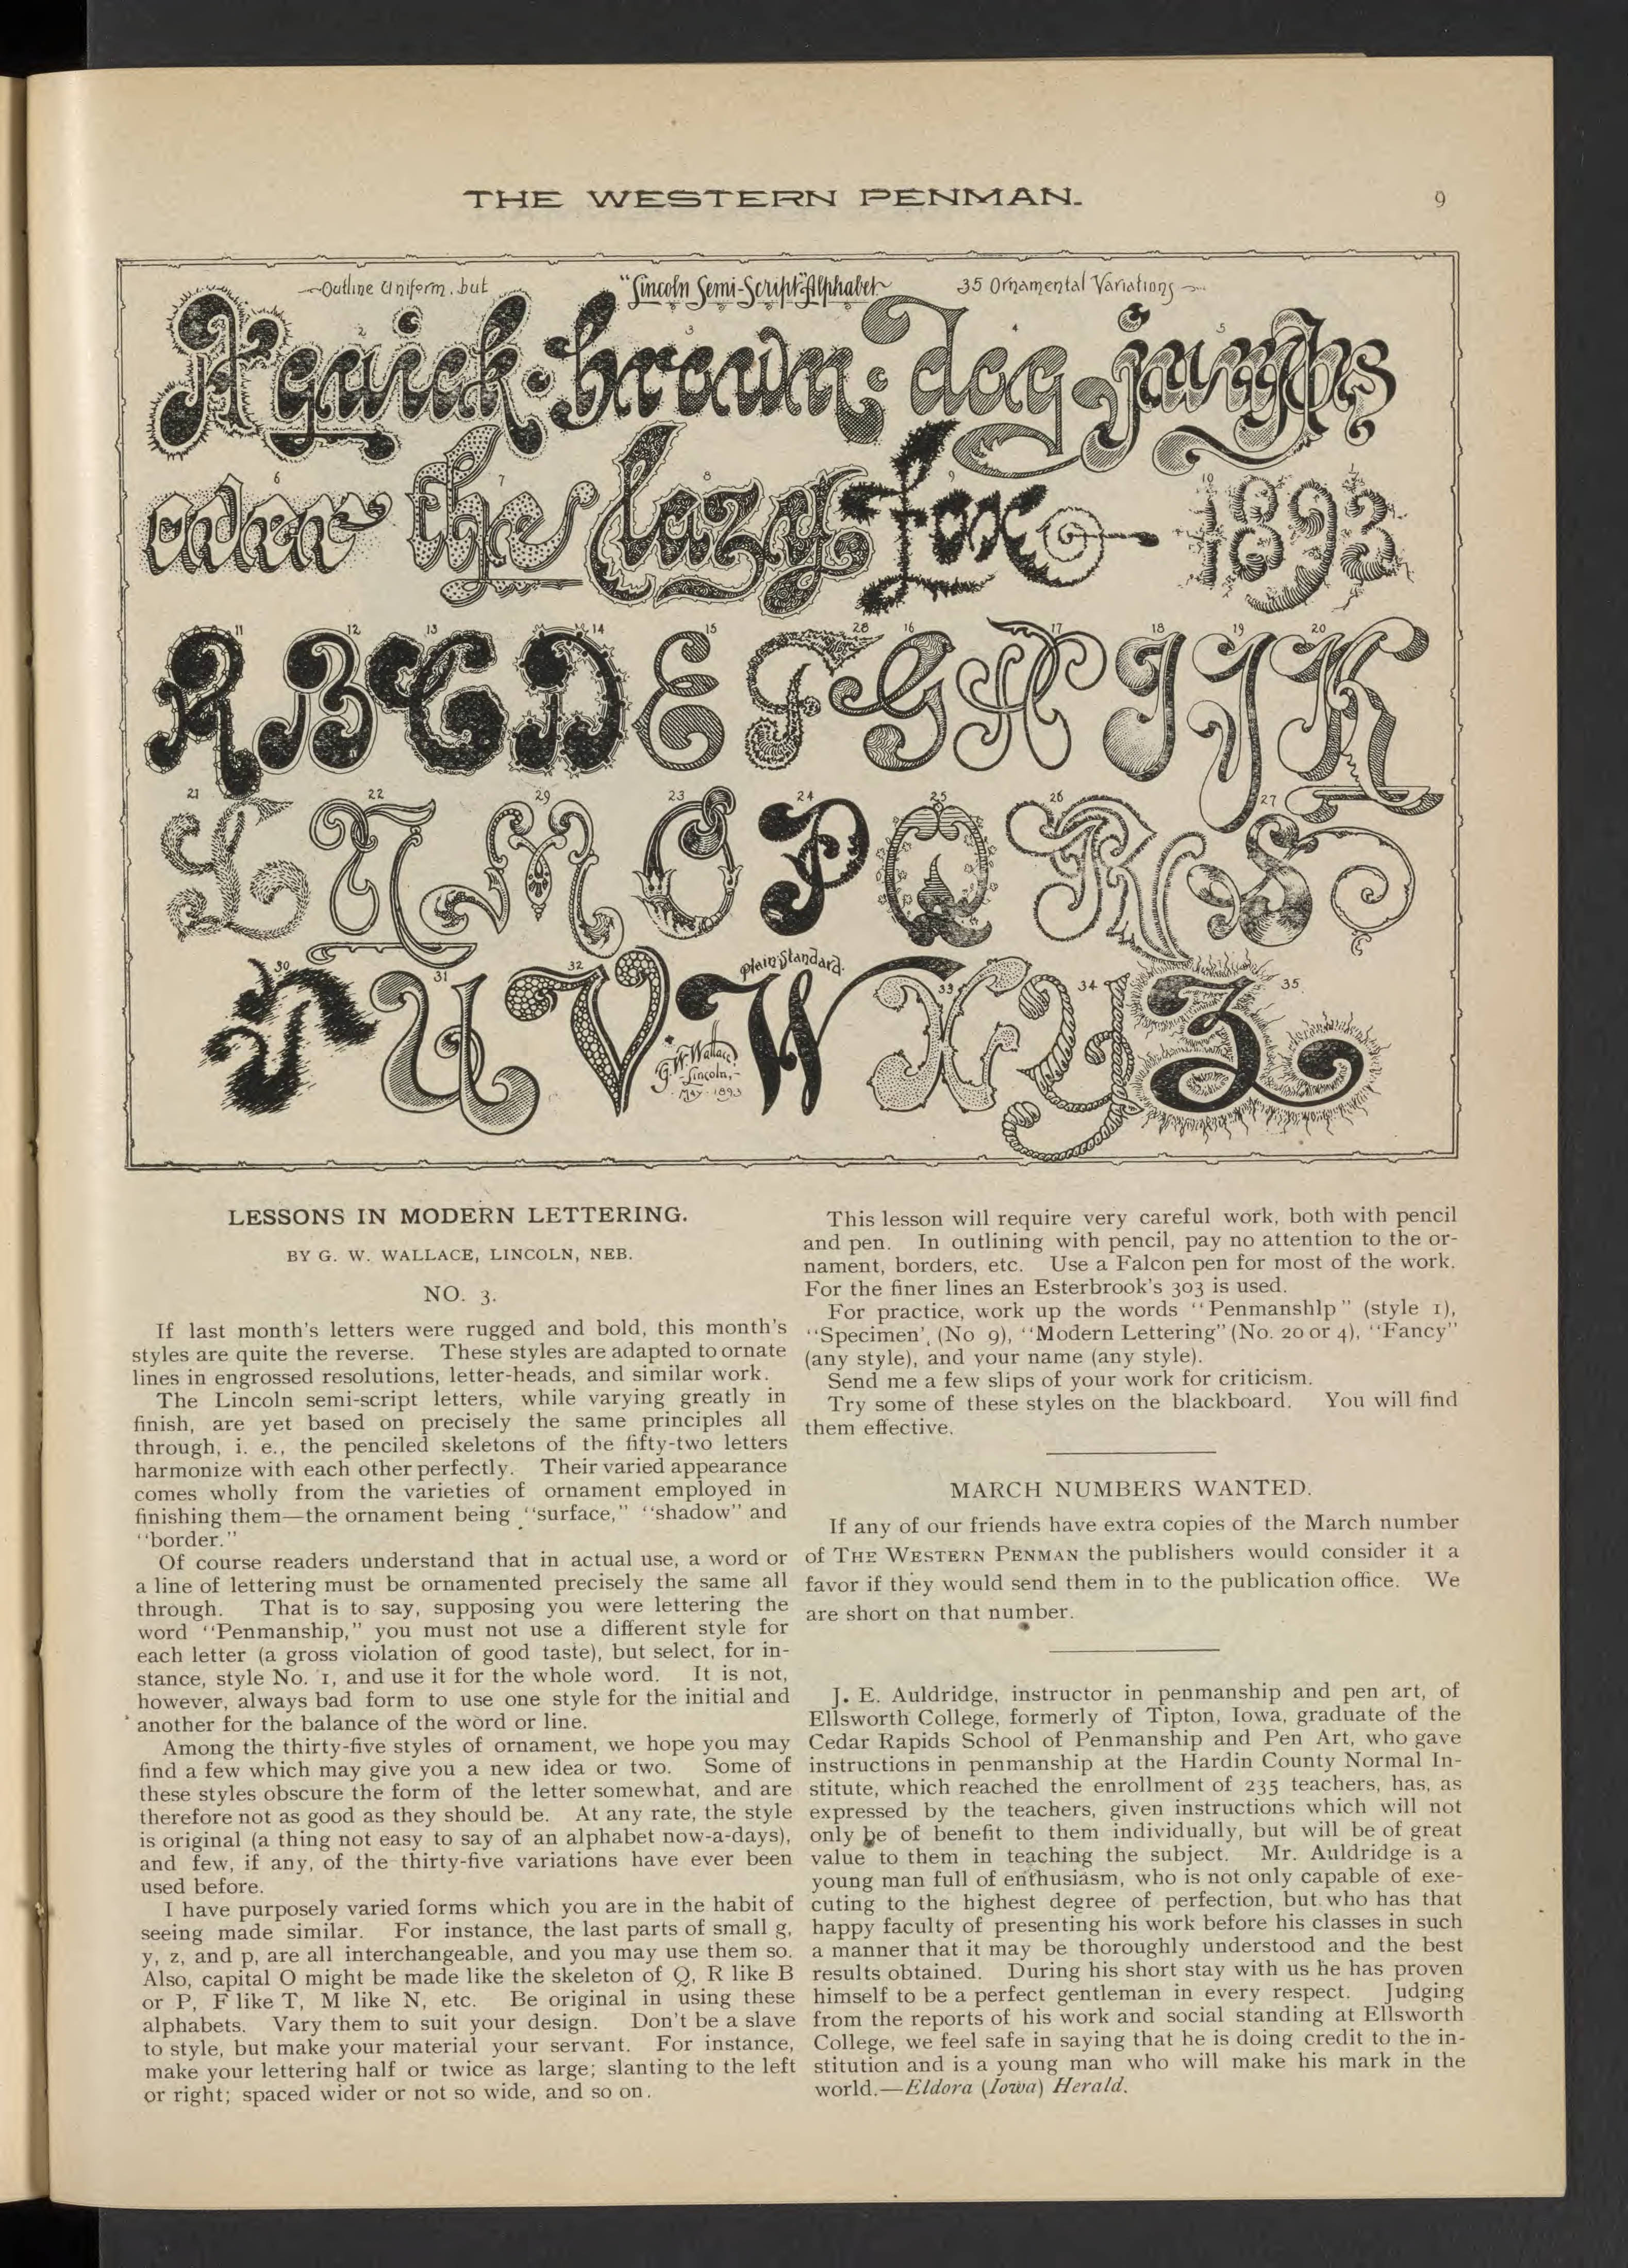 THE WESTERN PENMAN.
9
Outline Uniform, but
"Lincoln Semi-Script" Alphabet
35 Ornamental Variations
2 3 4 5
A quick brown dog jumps
6 7 8 9 10
over the lazy fox 1893
11 12 13 14 15 28 16 17 18 19 20
A B C D E F G H I J K
21 22 29 23 24 25 26 27
L N M O P Q R S
30 31 32 Plain Standard. 33 34 35
T U V W X Y Z
G. W. Wallace
Lincoln,
May. 1893
LESSONS IN MODERN LETTERING.
BY G. W. WALLACE, LINCOLN, NEB.
NO. 3.
If last month's letters were rugged and bold, this month's
styles are quite the reverse. These styles are adapted to ornate
lines in engrossed resolutions, letter-heads, and similar work.
The Lincoln semi-script letters, while varying greatly in
finish, are yet based on precisely the same principles all
through, i. e., the penciled skeletons of the fifty-two letters
harmonize with each other perfectly. Their varied appearance
comes wholly from the varieties of ornament employed in
finishing them—the ornament being "surface," "shadow" and
"border."
Of course readers understand that in actual use, a word or
a line of lettering must be ornamented precisely the same all
through. That is to say, supposing you were lettering the
word "Penmanship," you must not use a different style for
each letter (a gross violation of good taste), but select, for in-
stance, style No. 1, and use it for the whole word. It is not,
however, always bad form to use one style for the initial and
another for the balance of the word or line.
Among the thirty-five styles of ornament, we hope you may
find a few which may give you a new idea or two. Some of
these styles obscure the form of the letter somewhat, and are
therefore not as good as they should be. At any rate, the style
is original (a thing not easy to say of an alphabet now-a-days),
and few, if any, of the thirty-five variations have ever been
used before.
I have purposely varied forms which you are in the habit of
seeing made similar. For instance, the last parts of small g,
y, z, and p, are all interchangeable, and you may use them so.
Also, capital O might be made like the skeleton of Q, R like B
or P, F like T, M like N, etc. Be original in using these
alphabets. Vary them to suit your design. Don't be a slave
to style, but make your material your servant. For instance,
make your lettering half or twice as large; slanting to the left
or right; spaced wider or not so wide, and so on.
This lesson will require very careful work, both with pencil
and pen. In outlining with pencil, pay no attention to the or-
nament, borders, etc. Use a Falcon pen for most of the work.
For the finer lines an Esterbrook's 303 is used.
For practice, work up the words "Penmanshlp" (style 1),
"Specimen', (No 9), "Modern Lettering" (No. 20 or 4), "Fancy"
(any style), and your name (any style).
Send me a few slips of your work for criticism.
Try some of these styles on the blackboard. You will find
them effective.
MARCH NUMBERS WANTED.
If any of our friends have extra copies of the March number
of THE WESTERN PENMAN the publishers would consider it a
favor if they would send them in to the publication office. We
are short on that number.
J. E. Auldridge, instructor in penmanship and pen art, of
Ellsworth College, formerly of Tipton, Iowa, graduate of the
Cedar Rapids School of Penmanship and Pen Art, who gave
instructions in penmanship at the Hardin County Normal In-
stitute, which reached the enrollment of 235 teachers, has, as
expressed by the teachers, given instructions which will not
only be of benefit to them individually, but will be of great
value to them in teaching the subject. Mr. Auldridge is a
young man full of enthusiasm, who is not only capable of exe-
cuting to the highest degree of perfection, but who has that
happy faculty of presenting his work before his classes in such
a manner that it may be thoroughly understood and the best
results obtained. During his short stay with us he has proven
himself to be a perfect gentleman in every respect. Judging
from the reports of his work and social standing at Ellsworth
College, we feel safe in saying that he is doing credit to the in-
stitution and is a young man who will make his mark in the
world.—Eldora (Iowa) Herald.